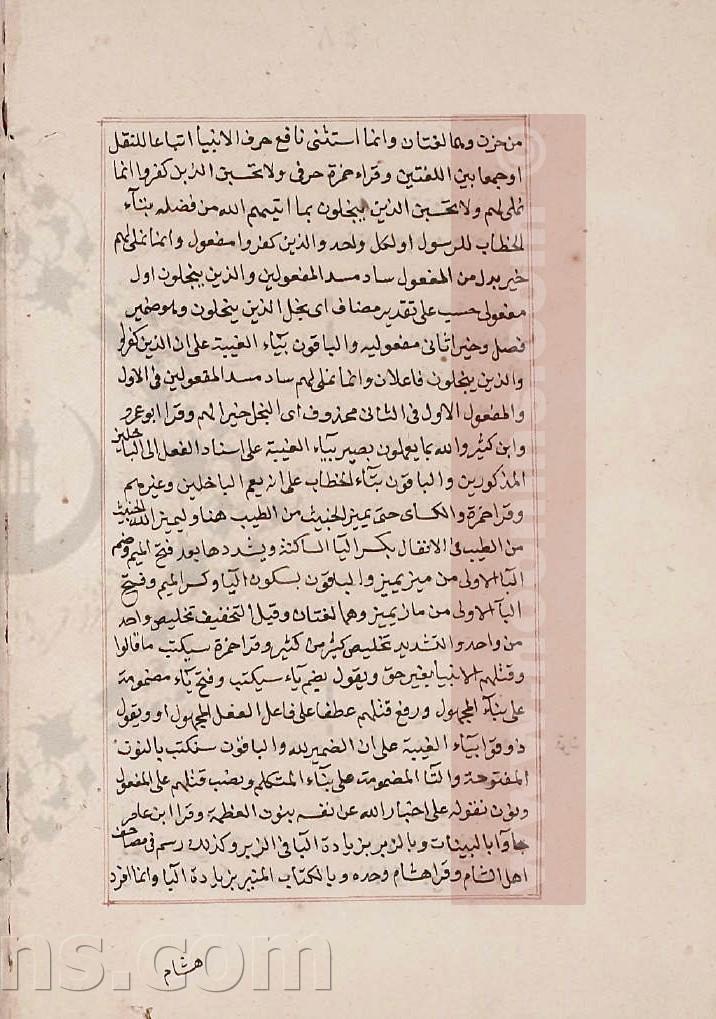 من حزن وهما لغتان وانما استثنى نافع حرف الانبيا اتباعا للنقل
او جمعا بين اللغتين وقراء حمزة حرفى ولا تحسبن الذين كفروا انما
نملى لهم ولا تحسبن الذين يبخلون بما اتيهم الله من فضله بتآء
الخطاب للرسول او لكل واحد والذين كفروا مفعول وانما نملى لهم
خير بدل من المفعول ساد مسد المفعولين والذين يبخلون اول
مفعولى حسب على تقدير مضاف اى بخل الذين يبخلون وهو ضمير
فصل وخيرا ثانى مفعوليه والباقون بيآء الغيبة على ان الذين كفروا
والذين يبخلون فاعلان وانما نملى لهم ساد مسد المفعولين فى الاول
والمفعول الاول فى الثانى محذوف اى البخل خيرا لهم وقرا ابو عمرو
وابن كثير والله بما يعملون بصير بيآء الغيبة على اسناد الفعل الى الباخلين
المذكورين والباقون بتآء الخطاب على انه يعم الباخلين وغيرهم
وقرا حمزة والكساى حتى يميز الخبيث من الطيب هنا وليميز الله الخبيث
من الطيب فى الانفال بكسر اليا الساكنة ويشددها بعد فتح الميم وضم
اليآ الاولى من ميز يميز والباقون بسكون اليآ وكسر الميم وفتح
اليآ الاولى من ماز يميز وهما لغتان وقيل التخفيف تخليص واحد
من واحد والتشديد تخليص كثير من كثير وقرا حمزة سيكتب ما قالوا
وقتلهم الانبيا بغير حق ويقول بضم يآء سيكتب وفتح يآء مضمومة
على بنآء المجهول ورفع قتلهم عطفا على فاعل الفعل المجهول او ويقول
ذوقوا بيآء الغيبة على ان الضمير لله والباقون سنكتب بالنون
المفتوحة والتآ المضمومة على بنآء المتكلم ونصب قتلهم على المفعول
ونون نقوله على اخبار الله عن نفسه بنون العظمة وقرا ابن عامر
جآوا بالبينات وبالزبر بزيادة البآ فى الزبر وكذلك رسم فى مصاحف
اهل الشام وقرا هشام وحده وبالكتاب المنير بزيادة البآ وانما افرد
هشام
ns.com